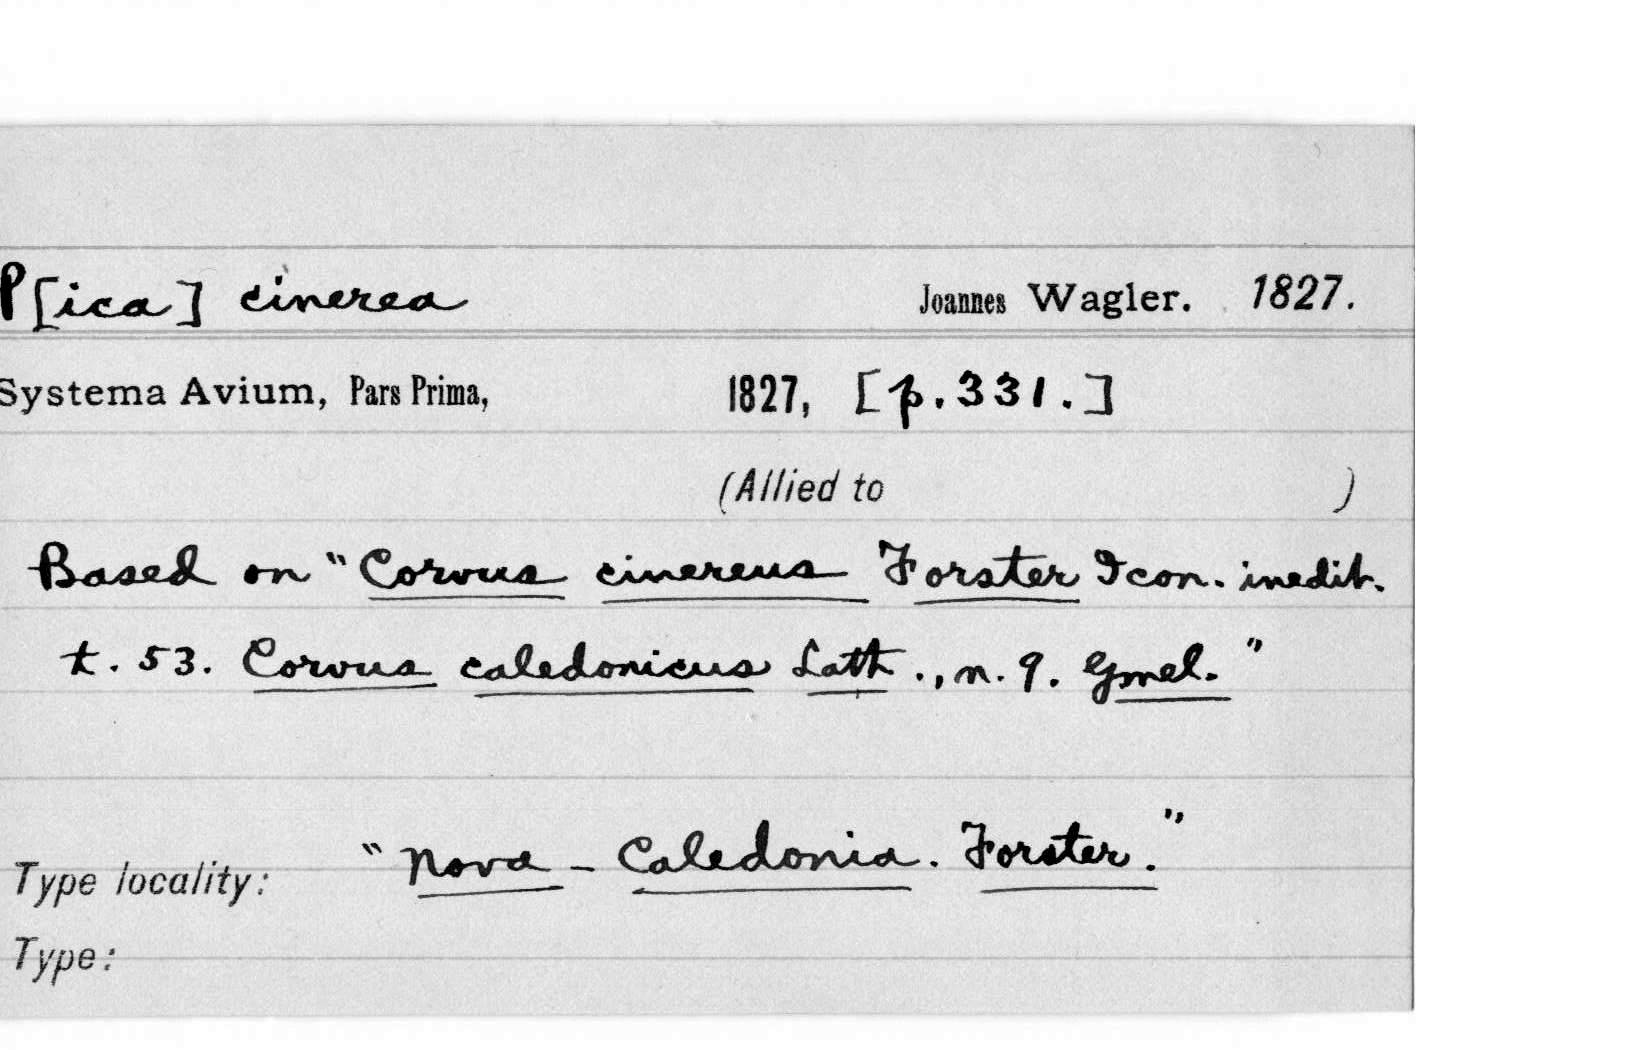 P[ica] cinerea Joannes Wagler. 1827.
Systema Avium, Pars Prima, 1827, [p.331.]
(Allied to )
Based on "Corvus cinereus Forster Icon. inedit.
t. 53. Corvus caledonicus Lath., n. 9. Gmel."
Type locality: "Nova-Caledonia. Forster."
Type: